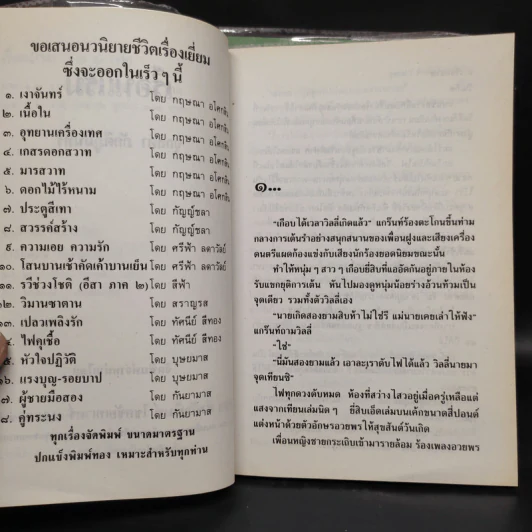 ขอเสนอนวนิยายชีวิตเรื่องเยี่ยม
ซึ่งจะออกในเร็ว ๆ นี้
๑. เงาจันทร์ โดย กฤษณา อโศกสิน
๒. เนื้อใน โดย กฤษณา อโศกสิน
๓. อุทยานเครื่องเทศ โดย กฤษณา อโศกสิน
๔. เกสรดอกสวาท โดย กฤษณา อโศกสิน
๕. มารสวาท โดย กฤษณา อโศกสิน
๖. ดอกไม้ไร้หนาม โดย กฤษณา อโศกสิน
๗. ประตูสีเทา โดย กัญญ์ชลา
๘. สวรรค์สร้าง โดย กัญญ์ชลา
๙. ความเอย ความรัก โดย ศรีฟ้า ลดาวัลย์
๑๐. โสนบานเช้าคัดเค้าบานเย็น โดย ศรีฟ้า ลดาวัลย์
๑๑. รวีช่วงโชติ (อีสา ภาค ๒) โดย สีฟ้า
๑๒. วิมานซาตาน โดย สราญรส
๑๓. เปลวเพลิงรัก โดย ทัศนีย์ สีทอง
๔. ไฟคุเชื้อ โดย ทัศนีย์ สีทอง
๕. หัวใจปฏิวัติ โดย บุษยมาส
๑๖. แรงบุญ-รอยบาป โดย บุษยมาส
๗. ผู้ชายมือสอง โดย กันยามาส
๘. คู่ทระนง โดย กันยามาส
ทุกเรื่องจัดพิมพ์ ขนาดมาตรฐาน
ปกแข็งพิมพ์ทอง เหมาะสำหรับทุกท่าน
๑...
"เกือบได้เวลาวิลลี่เกิดแล้ว" แกร๊นท์ร้องตะโกนขึ้นท่าม
กลางการเต้นรำอย่างสนุกสนานของเพื่อนฝูงและเสียงเครื่อง
ดนตรีแผดก้องแข่งกับเสียงนักร้องยอดนิยมขณะนั้น
ทำให้หนุ่ม ๆ สาว ๆ เกือบยี่สิบที่แออัดกันอยู่ภายในห้อง
รับแขกยุติการเต้น หันไปมองดูหนุ่มน้อยร่างอ้วนท้วมเป็น
จุดเดียว รวมทั้งตัววิลลี่เอง
"นายเกิดสองยามสิบห้าไม่ใช่รึ แม่นายเคยเล่าให้ฟัง"
แกร๊นท์ถามวิลลี่
"ใช่"
"นี่มันสองยามแล้ว เอาละเราดับไฟได้แล้ว วิลลี่นายมา
จุดเทียนซิ"
ไฟทุกดวงดับหมด ห้องที่สว่างไสวอยู่เมื่อครู่เหลือแต่
แสงจากเทียนเล่มนิด ๆ ยี่สิบเอ็ดเล่มบนเค้กขนาดสี่ปอนด์
แต่งหน้าด้วยตัวอักษรอวยพร ให้สุขสันต์วันเกิด
เพื่อนหญิงชายกระเถิบเข้ามารายล้อม ร้องเพลงอวยพร